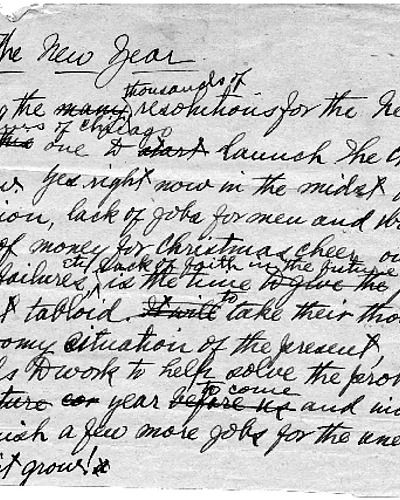 The New Year
thousands of
the many resolutions for the Ne
of Chicago
this one to start launch the C
Yes right now in the midst
ion, lack of jobs for men and
of money for Christmas cheer, ou
etc, lack of faith in the future
failures, is the time to give the
t tabloid. It will to take their tho
oomy situation of the present,
ls to work to help solve the pro
to come
ture or year before us and in
uish a few more jobs for the une
it grow!